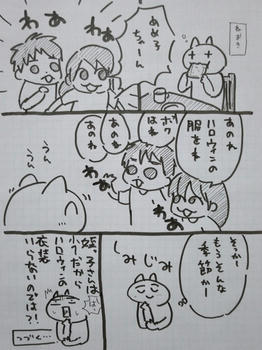 あめろ
ちゃーん
わあ
わあ
あのね
ハロウィンの
服をね
ボク
はね
あのね
あのね
わあ
わあ
うん
うん
そっかー
もうそんな
季節かー
しみ
じみ
小1だから
ハロウィンの
衣装
いらないのでは?!
つづく…